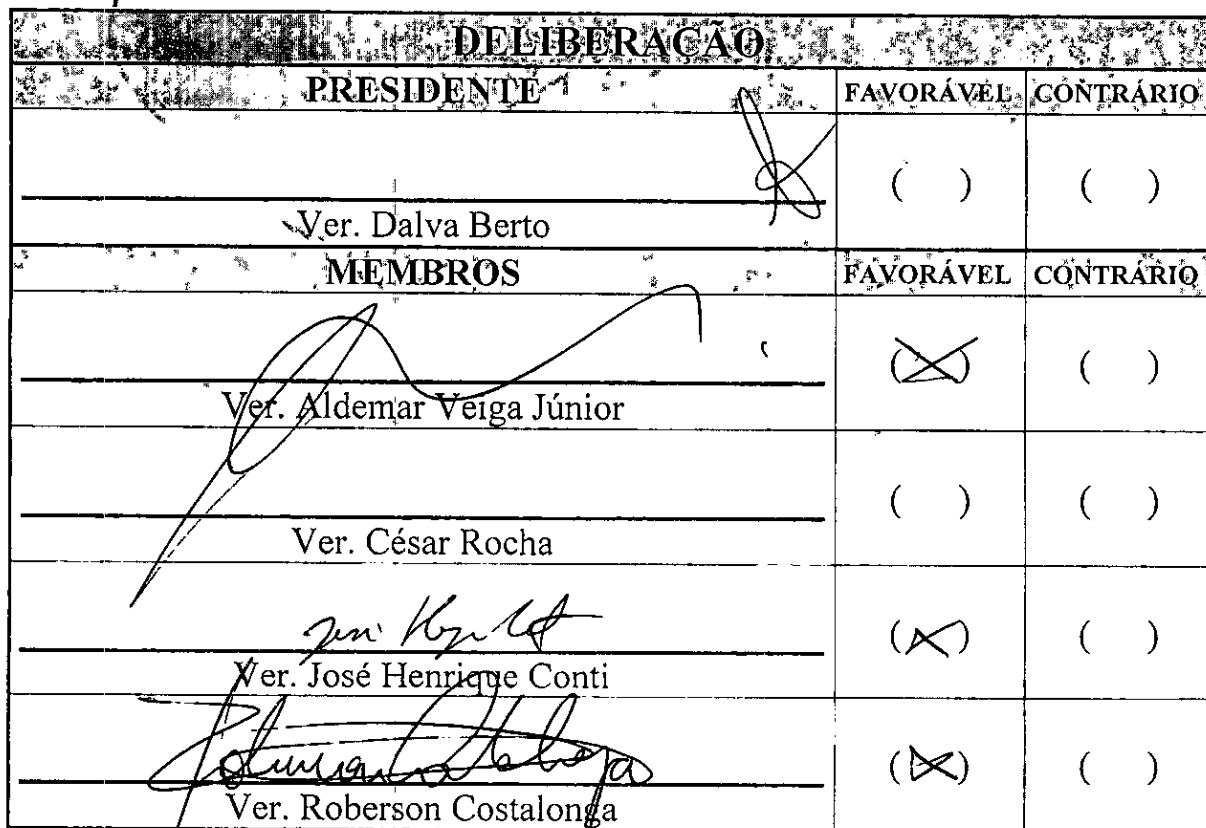 DELIBERAÇÃO
PRESIDENTE FAVORÁVEL CONTRÁRIO
( ) ( )
Ver. Dalva Berto
MEMBROS FAVORÁVEL CONTRÁRIO
(X) ( )
Ver. Aldemar Veiga Júnior
( ) ( )
Ver. César Rocha
(X) ( )
Ver. José Henrique Conti
(X) ( )
Ver. Roberson Costalonga